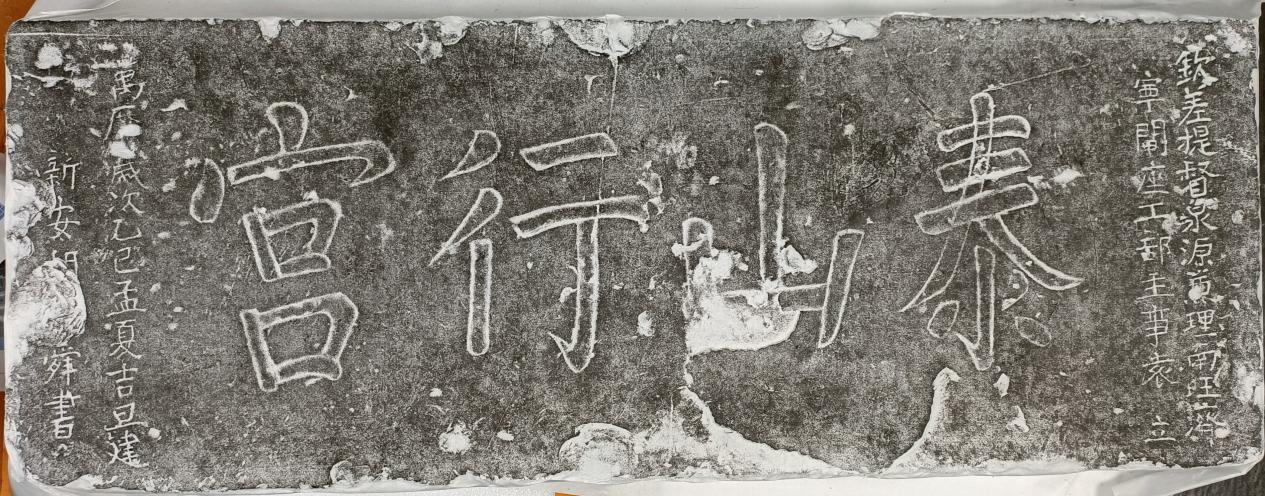 欽差提督泉源兼理南旺濟
寧閘座工部主事袁 立
泰山行宮
萬历歲次乙巳孟夏吉旦建
新安胡 舜書